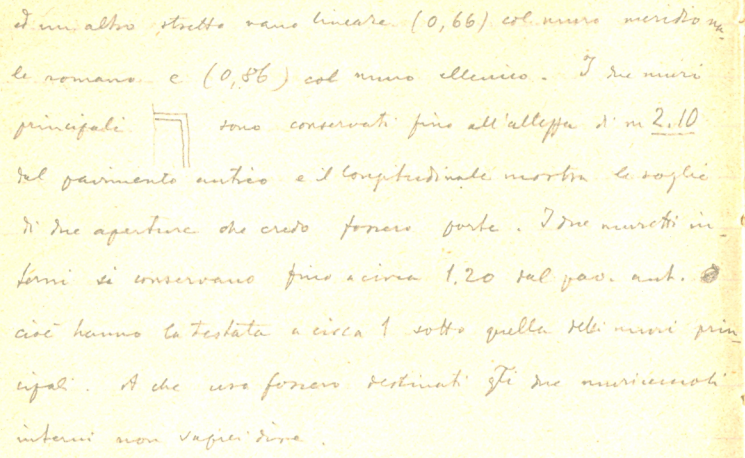 ed un altro stretto vano lineare (0,66) col muro meridiona-
le romano e (0,86) col muro ellenico. I due muri
principali sono conservati fino all'altezza di m 2.10
dal pavimento antico e il longitudinale mostra le soglie
di due aperture che credo fossero porte. I due muretti in-
terni si conservano fino a circa 1.20 dal pav. ant.
cioè hanno la testata a circa 1 sotto quella dei muri prin-
cipali. A che uso fossero destinati gli due muricciuoli
interni non saprei dire.